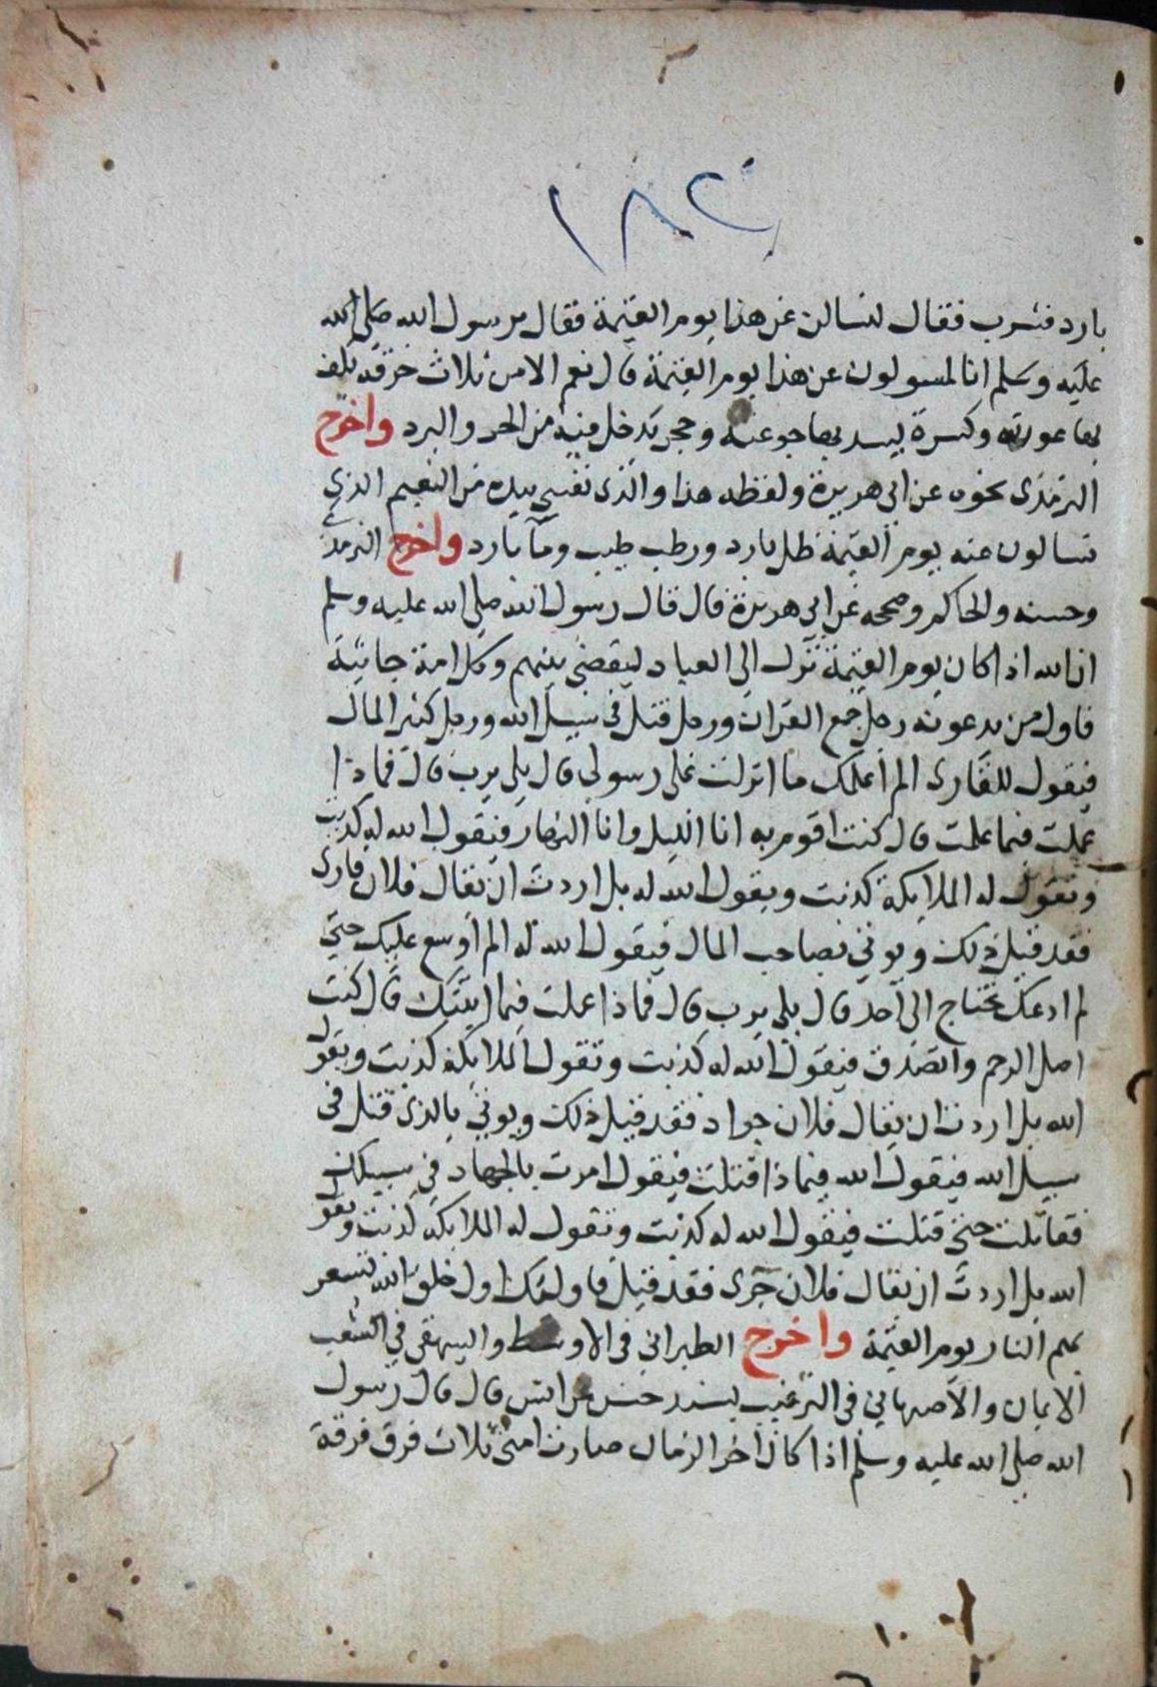 ١٨٢
بارد فشرب فقال لتسالن عن هذا يوم القيمة فقال يرسول الله صلى الله
عليه وسلم انا لمسولون عن هذا يوم القيمة قال نعم الا من ثلاث خرقة يلف
بها عورته وكسرة يسد بها جوعته وحجر يدخل فيه من الحر والبرد واخرج
الترمذى نحوه عن ابى هريرة ولفظه هذا والذى نفسى بيده من النعيم الذي
تسالون عنه يوم القيمة ظل بارد ورطب طيب ومآ بارد واخرج الترمذى
وحسنه والحاكم وصححه عن ابى هريرة قال قال رسول الله صلى الله عليه وسلم
ان الله اذا كان يوم القيمة نزل الى العباد ليقضى بينهم وكل امة جاثية
فاول من يدعو به رجل جمع القران ورجل قتل فى سبيل الله ورجل كثير المال
فيقول للقارى الم اعلمك ما انزلت على رسولى قال بلى يرب قال فماذا
عملت فيما علمت قال كنت اقوم به انا الليل وانا النهار فيقول الله له كذبت
وتقول له الملايكة كذبت ويقول الله له بل اردت ان يقال فلان قارى
فقد قيل ذلك ويوتى بصاحب المال فيقول الله له الم اوسع عليك حتى
لم ادعك تحتاج الى احد قال بلى يرب قال فماذا عملت فيما اتيتك قال كنت
اصل الرحم واتصدق فيقول الله له كذبت وتقول الملايكة كذبت ويقول
الله بل اردت ان يقال فلان جواد فقد قيل ذلك ويوتى بالذى قتل فى
سبيل الله فيقول الله فيماذا قتلت فيقول امرت بالجهاد في سبيلك
فقاتلت حتى قتلت فيقول الله له كذبت وتقول له الملايكة كذبت ويقول
الله بل اردت ان يقال فلان جرى فقد قيل فاولئك اول خلق الله تسعر
بهم النار يوم القيمة واخرج الطبرانى فى الاوسط والبيهقى في الشعب
الايمان والاصبهاني فى الترغيب بسند حسن عن انس قال قال رسول
الله صلى الله عليه وسلم اذا كان اخر الزمان صارت امتى ثلاث فرق فرقة